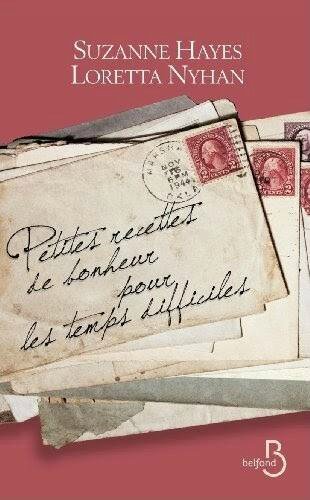 SUZANNE HAYES
LORETTA NYHAN
NOV
6 PM
1944
Petites recettes
de bonheur
pour
les temps difficiles
belfond